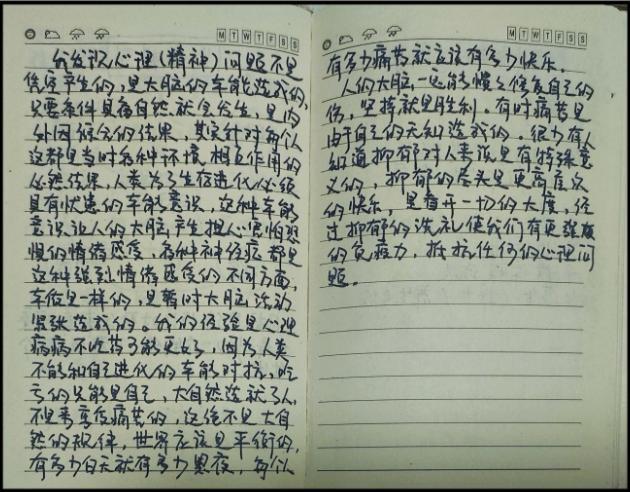 M T W T F S S
我发现心理（精神）问题不是
凭空产生的，是大脑的本能造成的，
只要条件具备自然就会发生，是内
外因综合的结果，其实针对每个人
这都是当时各种环境相互作用的
必然结果，人类为了生存进化必须
具有忧患的本能意识，这种本能
意识让人的大脑产生担心害怕恐
惧的情绪感度，各种神经症都是
这种强烈情绪感度的不同方面，
本质是一样的，是暂时大脑活动
紧张造成的。我的经验是心理
疾病不吃药可能更好，因为人类
不能和自己进化的本能对抗，吃
亏的只能是自己，大自然造就了人
不是来享受痛苦的，这绝不是大自
然的规律，世界应该是平衡的，
有多少白天就有多少黑夜，每个人
M T W T F S S
有多少痛苦就应该有多少快乐。
人的大脑一定能慢慢修复自己的
伤，坚持就是胜利。有时痛苦是
由于自己的无知造成的。很少有人
知道抑郁对人类该是有特殊意
义的，抑郁的尽头是更高层次
的快乐，是看开一切的大度，经
过抑郁的洗礼使我们有更强大
的免疫力，抵抗任何的心理问
题。